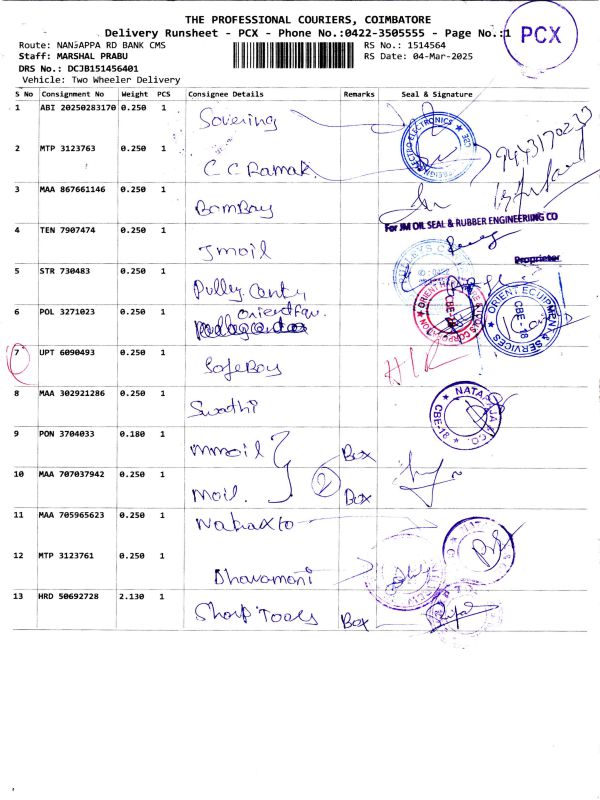 THE PROFESSIONAL COURIERS, COIMBATORE
Delivery Runsheet - PCX - Phone No.:0422-3505555 - Page No.:1
PCX
Route: NANJAPPA RD BANK CMS
RS No.: 1514564
Staff: MARSHAL PRABU
RS Date: 04-Mar-2025
DRS No.: DCJB151456401
Vehicle: Two Wheeler Delivery
S No Consignment No Weight PCS Consignee Details Remarks Seal & Signature
1 ABI 20250283170 0.250 1 Sovering
9443170233
2 MTP 3123763 0.250 1 C C Ramak.
3 MAA 867661146 0.250 1 BomBay
For JM OIL SEAL & RUBBER ENGINEERING CO
4 TEN 7907474 0.250 1 Jmoil
Proprietor
5 STR 730483 0.250 1 Pulley Centy
6 POL 3271023 0.250 1 orient
ORIENT EQUIPMENT & SERVICES
CBE-18
7 UPT 6090493 0.250 1 SafeBoy
8 MAA 302921286 0.250 1 Swathi
NATARAJA & CO.
CBE-18
9 PON 3704033 0.180 1 mmoil Box
2
10 MAA 707037942 0.250 1 moil. Box
11 MAA 705965623 0.250 1
12 MTP 3123761 0.250 1 Dhavamoni
13 HRD 50692728 2.130 1 Sharp Tools Box